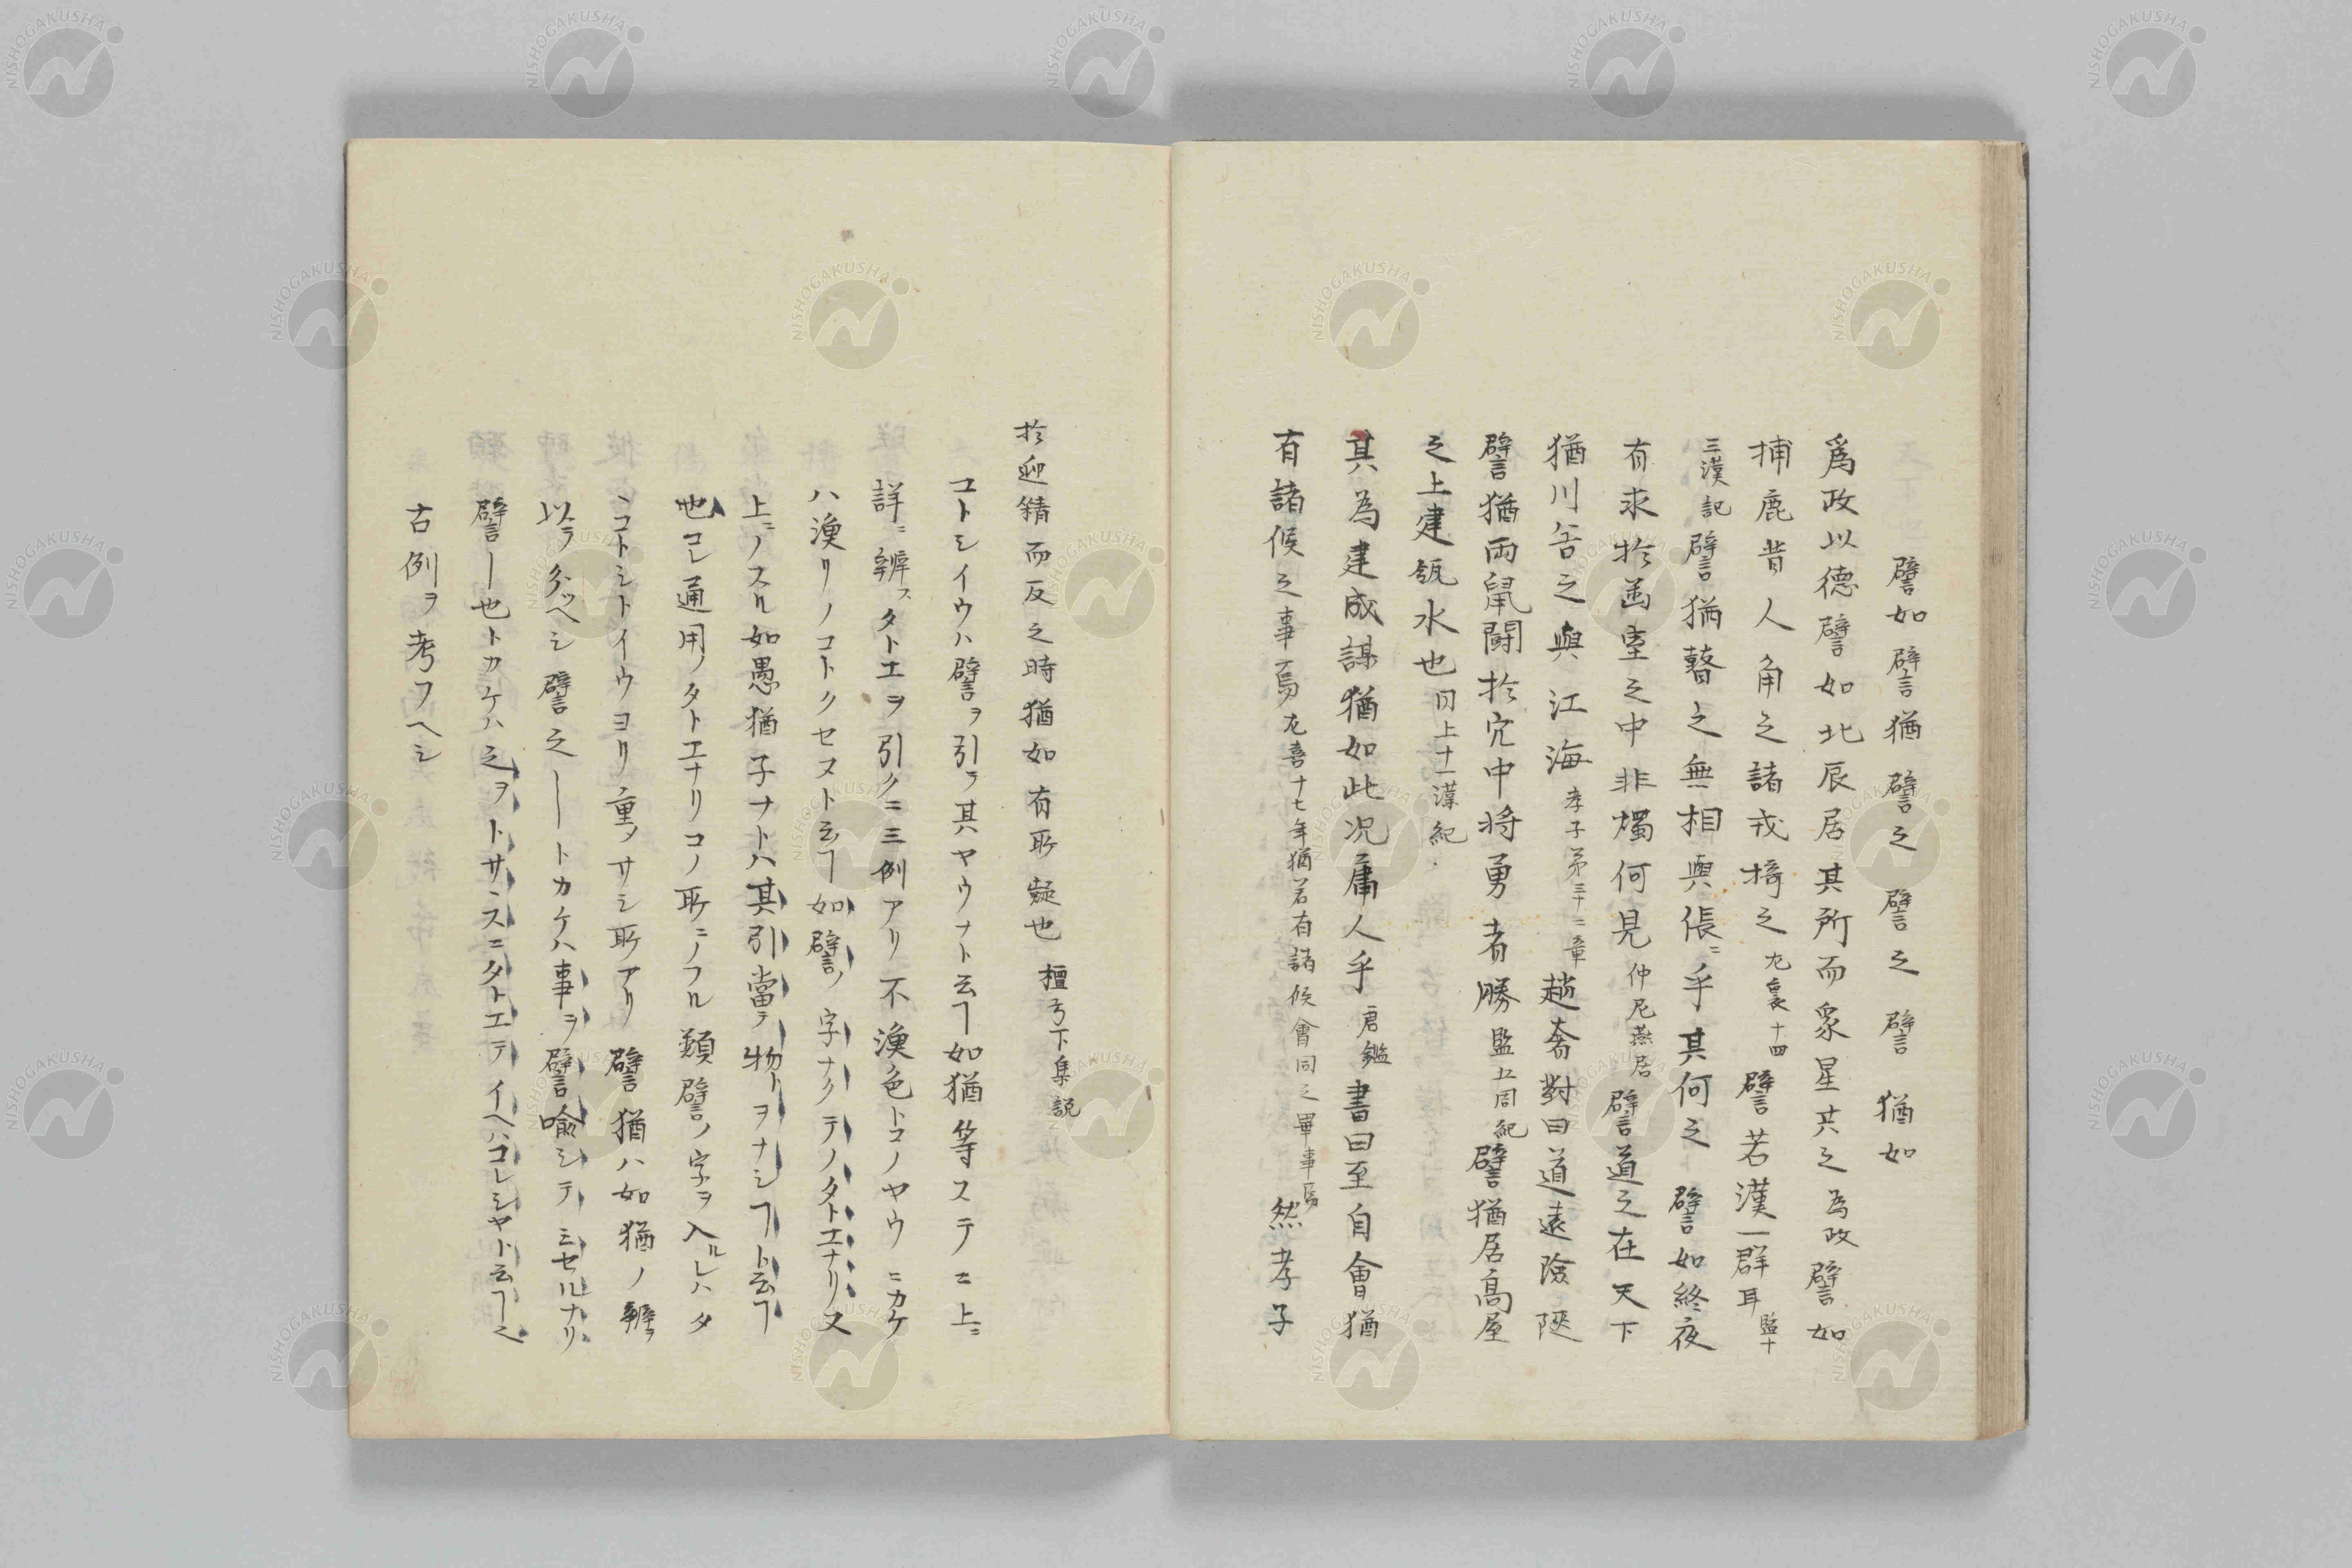 譬如譬猶譬之譬之譬猶如
爲政以德譬如北辰居其所而衆星共之為政譬如
捕鹿昔人角之諸戎掎之左襄十四譬若漢一群耳監十
三漢記譬猶瞽之無相與倀ニ乎其何之譬如終夜
有求於幽室之中非燭何見仲尼燕居譬道之在天下
猶川谷之與江海孝子第三十二章趙奢對曰道遠險陜
譬猶両鼠闘於穴中将勇者勝監五周紀譬猶居高屋
之上建瓴水也同上十一漢紀
其為建成謀猶如此况庸人乎唐鑑書曰至自會猶
有諸侯之事焉左喜十七年猶若有諸候會同之畢事焉然孝子
於迎精而反之時猶如有所疑也檀弓下集説
コトシイウハ譬ヲ引ヲ其ヤウナト云ヿ如猶等ステニ上ニ
詳ニ辨スタトエヲ引クニ三例アリ不漁色トコノヤウニカケ
ハ漁リノコトクセヌト云ヿ如譬ノ字ナクテノタトエナリ又
上ニノスル如愚猶子ナトハ其引當テ物トヲナシヿト云ヿ
也コレ通用ノタトエナリコノ所ニノフル類譬ノ字ヲ入ルレハタ
ニコトシトイウヨリ重ヲサシ所アリ譬猶ハ如猶ノ辨ヲ
以ラ分ツヘシ譬之――トカケハ事ヲ譬喩シテミセルナリ
譬―也トカケハ之ヲトサシスニタトエテイヘハコレシヤト云ヿ也
古例ヲ考フヘシ